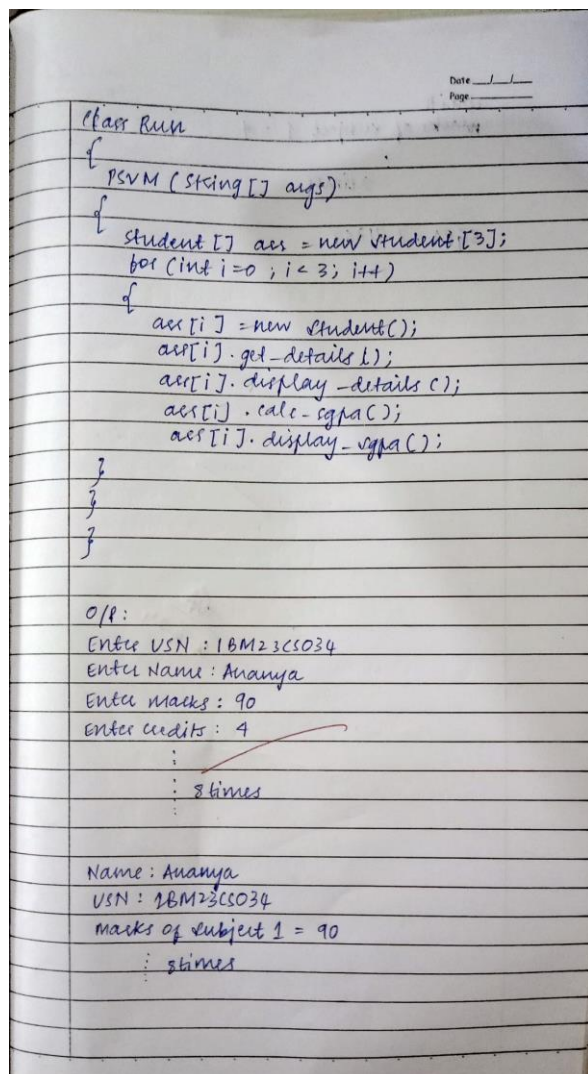 Date __/__/__
Page
Class Run
{
PSVM (String [] args)
{
Student [] arr = new Student [3];
for (int i=0 ; i < 3; i++)
{
arr [i] = new Student();
arr[i]. get-details ();
arr[i]. display-details ();
arr[i]. calc-sgpa();
arr[i]. display-sgpa();
}
}
}
O/P:
Enter USN : 1BM23CS034
Enter Name : Ananya
Enter marks : 90
Enter credits : 4
⋮
⋮ 8 times
Name : Ananya
USN : 1BM23CS034
marks of subject 1 = 90
⋮ 8times